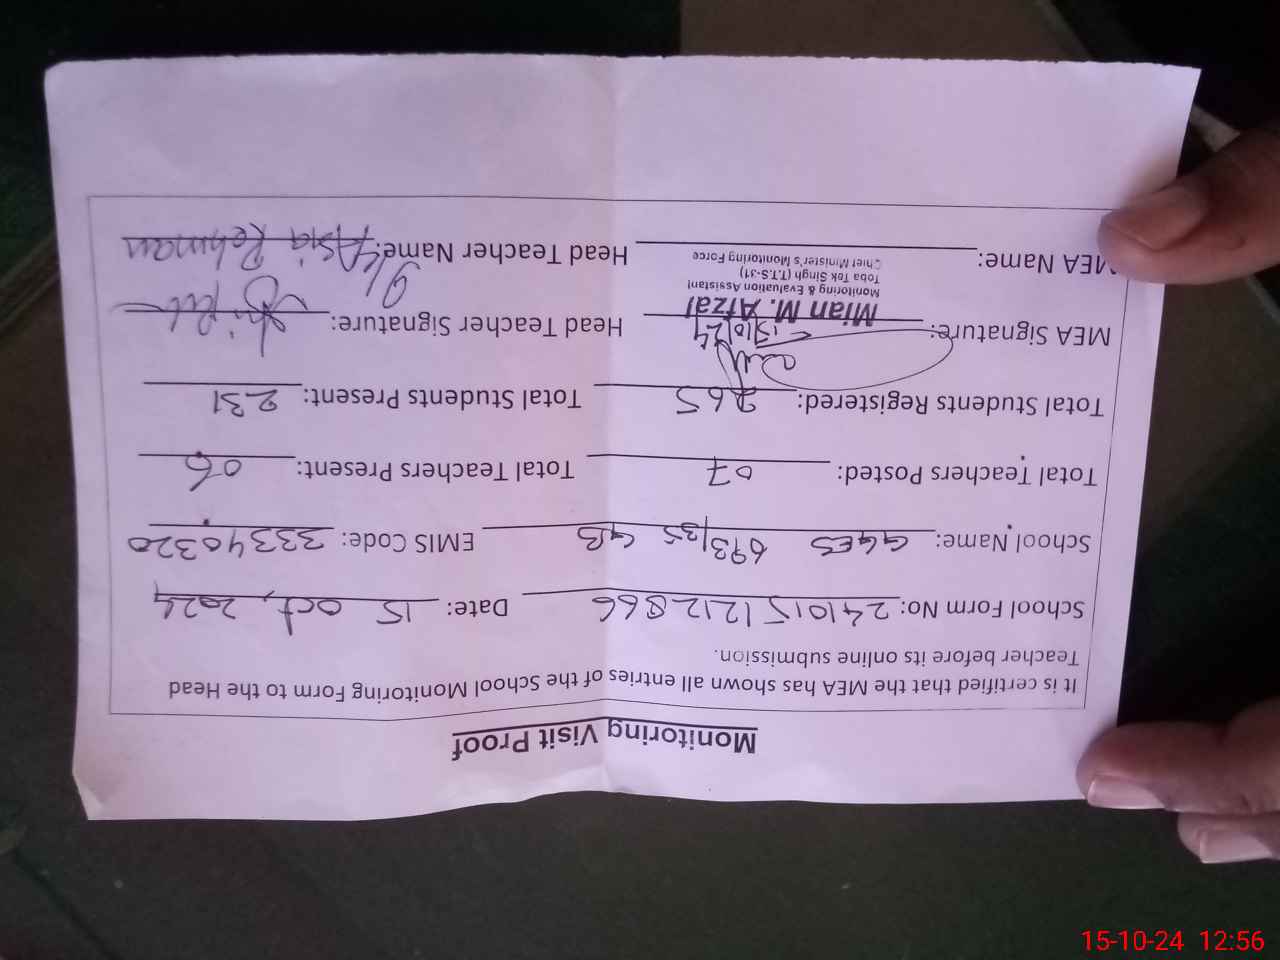 Monitoring Visit Proof
It is certified that the MEA has shown all entries of the School Monitoring Form to the Head
Teacher before its online submission.
School Form No: 241015 1212866 Date: 15 Oct, 2024
School Name: GGES 693/35 GB EMIS Code: 33340320
Total Teachers Posted: 07 Total Teachers Present: 06
Total Students Registered: 265 Total Students Present: 231
MEA Signature: 15/10/24 Head Teacher Signature:
Mian M. Afzal
Monitoring & Evaluation Assistant
Toba Tek Singh (T.T.S-31)
Chief Minister's Monitoring Force
MEA Name: Head Teacher Name: Asia Rehman
15-10-24 12:56